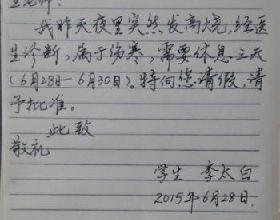 老师:
我昨天夜里突然发高烧,经医
生诊断,属于伤寒,需要休息三天
(6月28日-6月30日)。特向您请假,请
予批准。
此致
敬礼
学生 李太白
2015年6月28日.